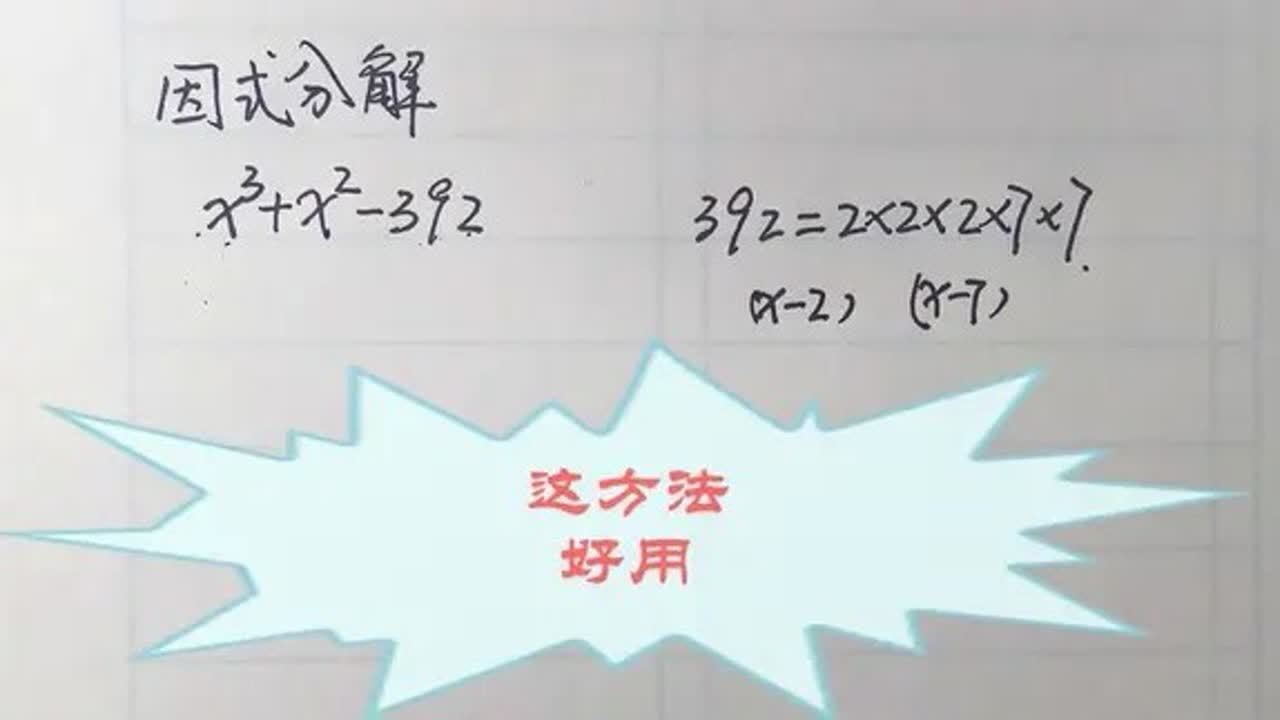 因式分解
x³+x²-392
392=2×2×2×7×7
(x-2) (x-7)
这方法
好用